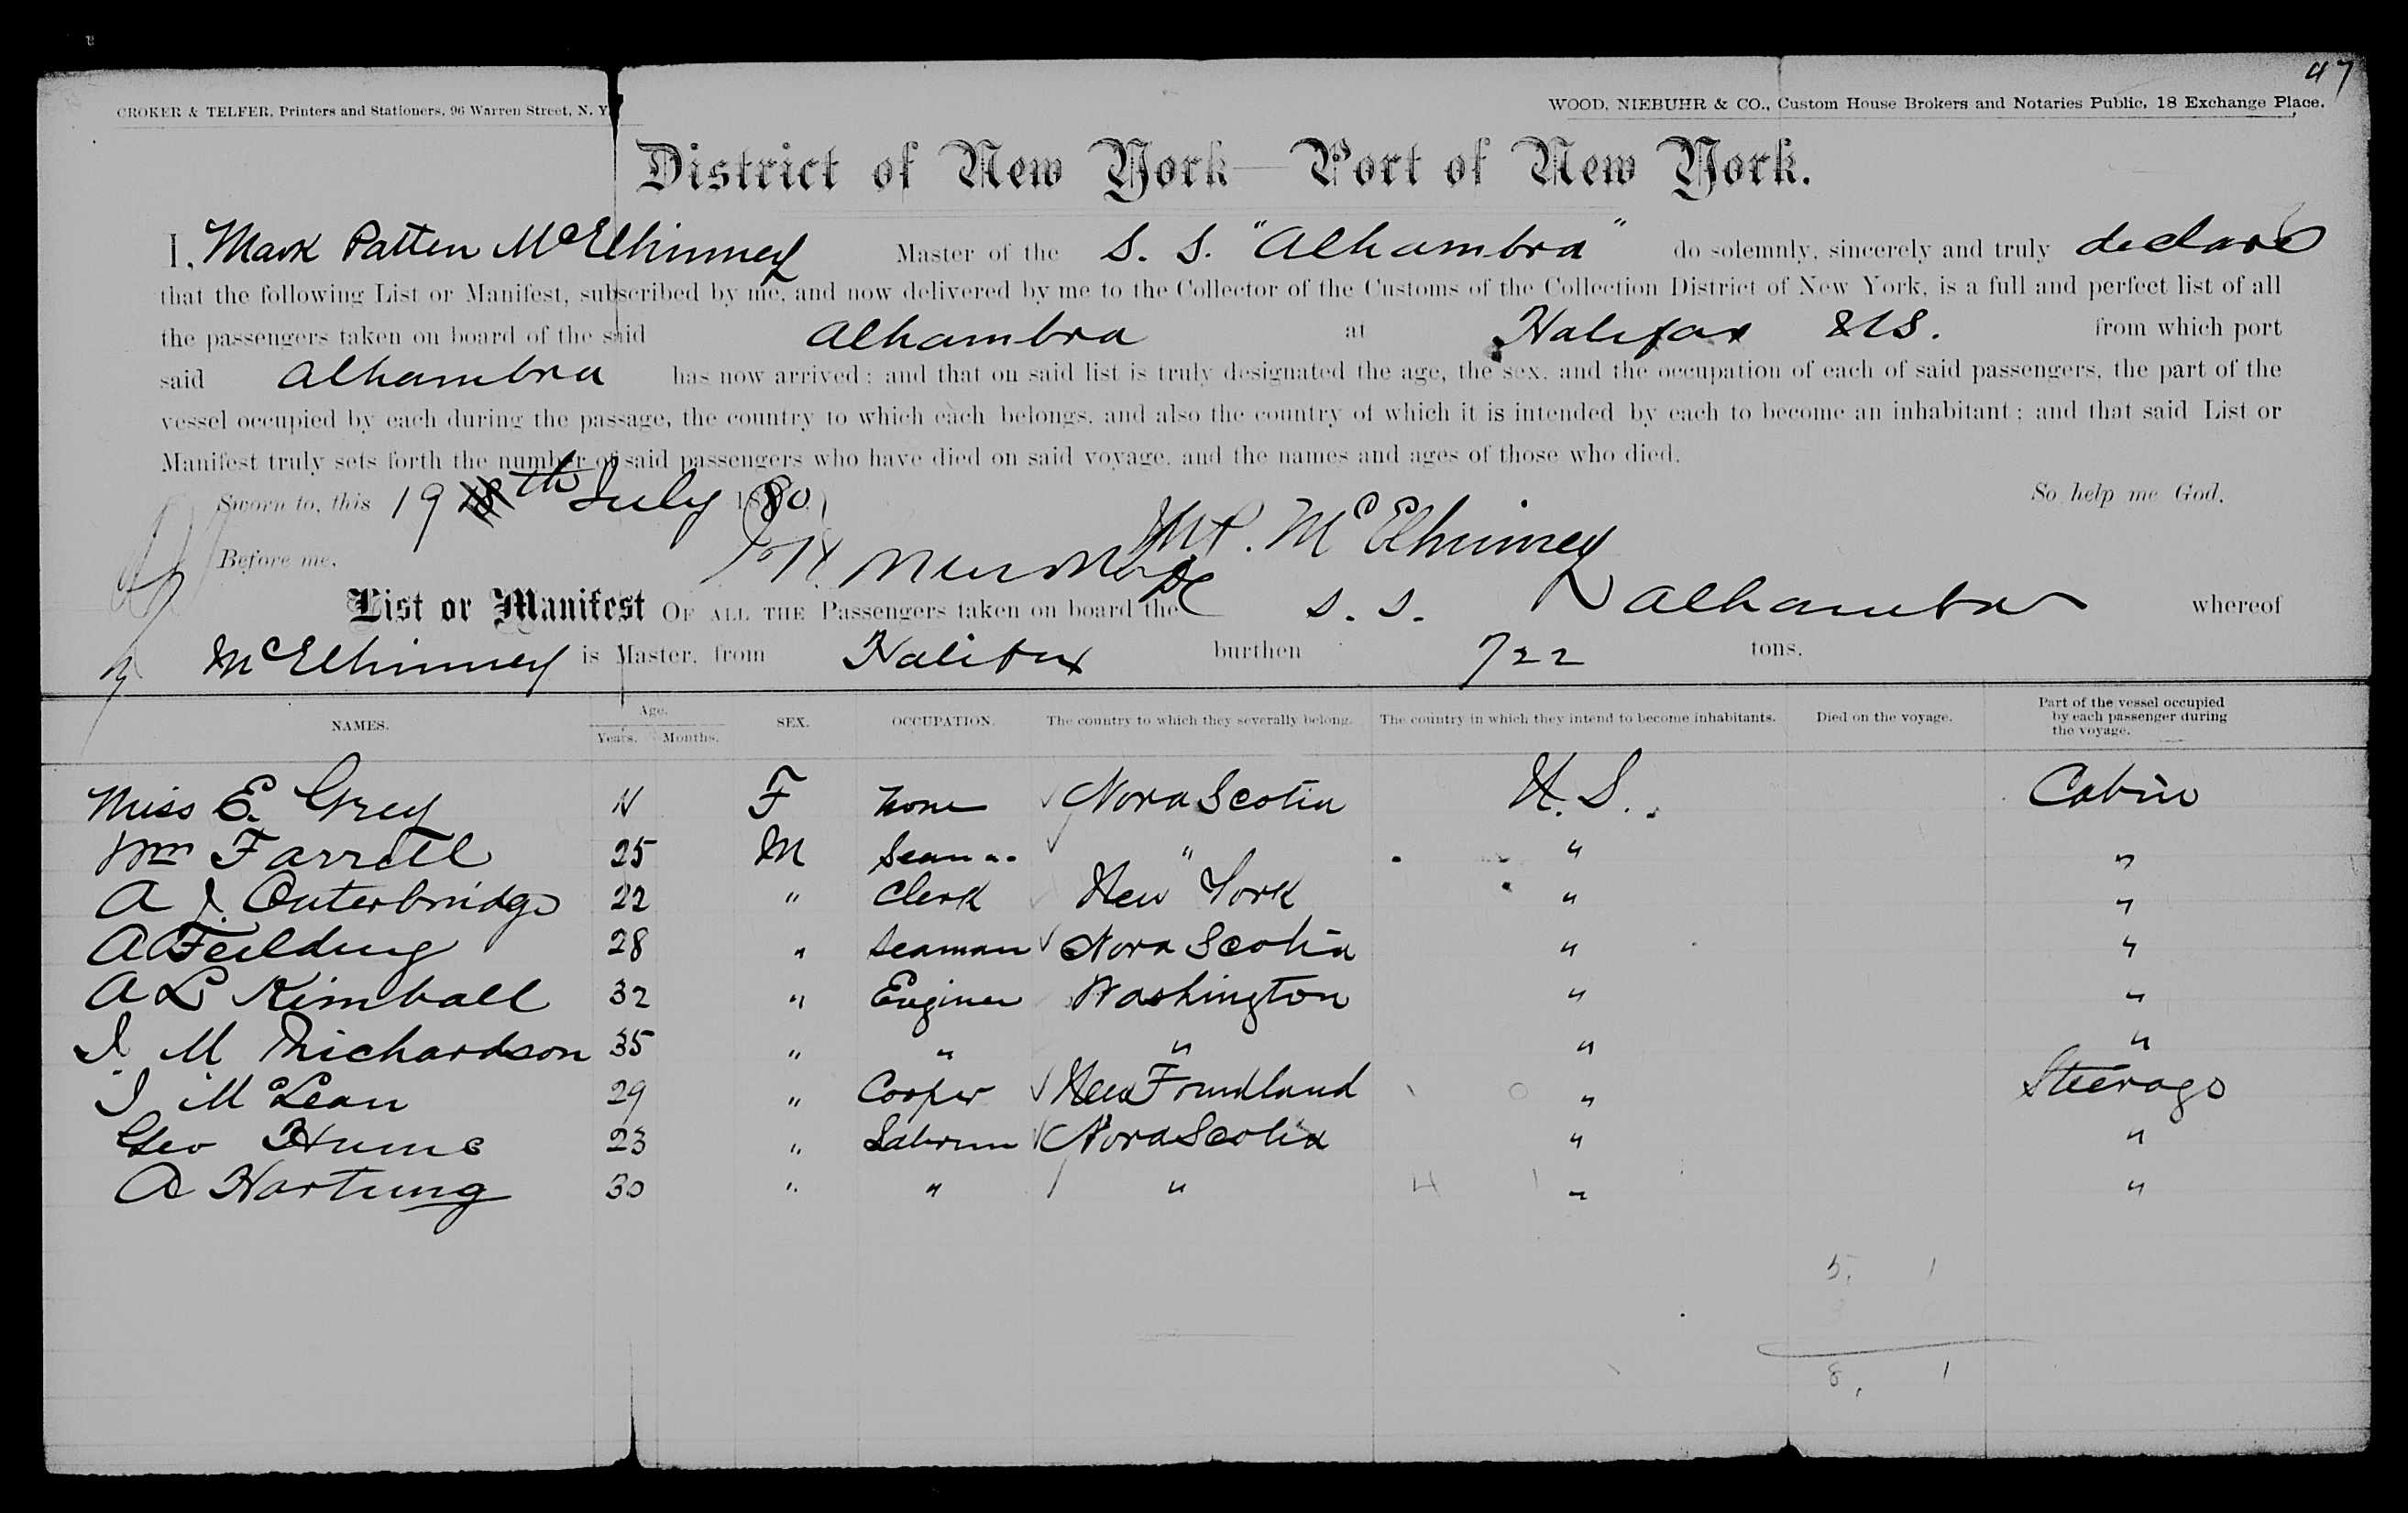 47
CROKER & TELFER, Printers and Stationers, 96 Warren Street, N. Y.
WOOD, NIEBUHR & CO., Custom House Brokers and Notaries Public, 18 Exchange Place.
District of New York—Port of New York.
I, Mark Patten McElhinney Master of the S. S. "Alhambra" do solemnly, sincerely and truly declare
that the following List or Manifest, subscribed by me, and now delivered by me to the Collector of the Customs of the Collection District of New York, is a full and perfect list of all
the passengers taken on board of the said Alhambra at Halifax N.S. from which port
said Alhambra has now arrived; and that on said list is truly designated the age, the sex, and the occupation of each of said passengers, the part of the
vessel occupied by each during the passage, the country to which each belongs, and also the country of which it is intended by each to become an inhabitant; and that said List or
Manifest truly sets forth the number of said passengers who have died on said voyage, and the names and ages of those who died.
Sworn to, this 19th July 1880 So help me God.
Before me, M P. McElhinney
List or Manifest OF ALL THE Passengers taken on board the S. S. Alhambra whereof
McElhinney is Master, from Halifax burthen 722 tons.
NAMES. Age. Years. Months. SEX. OCCUPATION. The country to which they severally belong. The country in which they intend to become inhabitants. Died on the voyage. Part of the vessel occupied by each passenger during the voyage.
Miss E. Grey F None Nova Scotia U. S. Cabin
Wm Farrell 25 M Seaman " " "
A J. Outerbridge 22 " Clerk New York " "
A Feilding 28 " Seaman Nova Scotia " "
A L Kimball 32 " Enginer Washington " "
J. M Richardson 35 " " " " "
J McLean 29 " Cooper New Foundland " Steerage
Geo Hume 23 " Nova Scotia " "
A Hartung 30 " " " " "
5, 1
8, 1